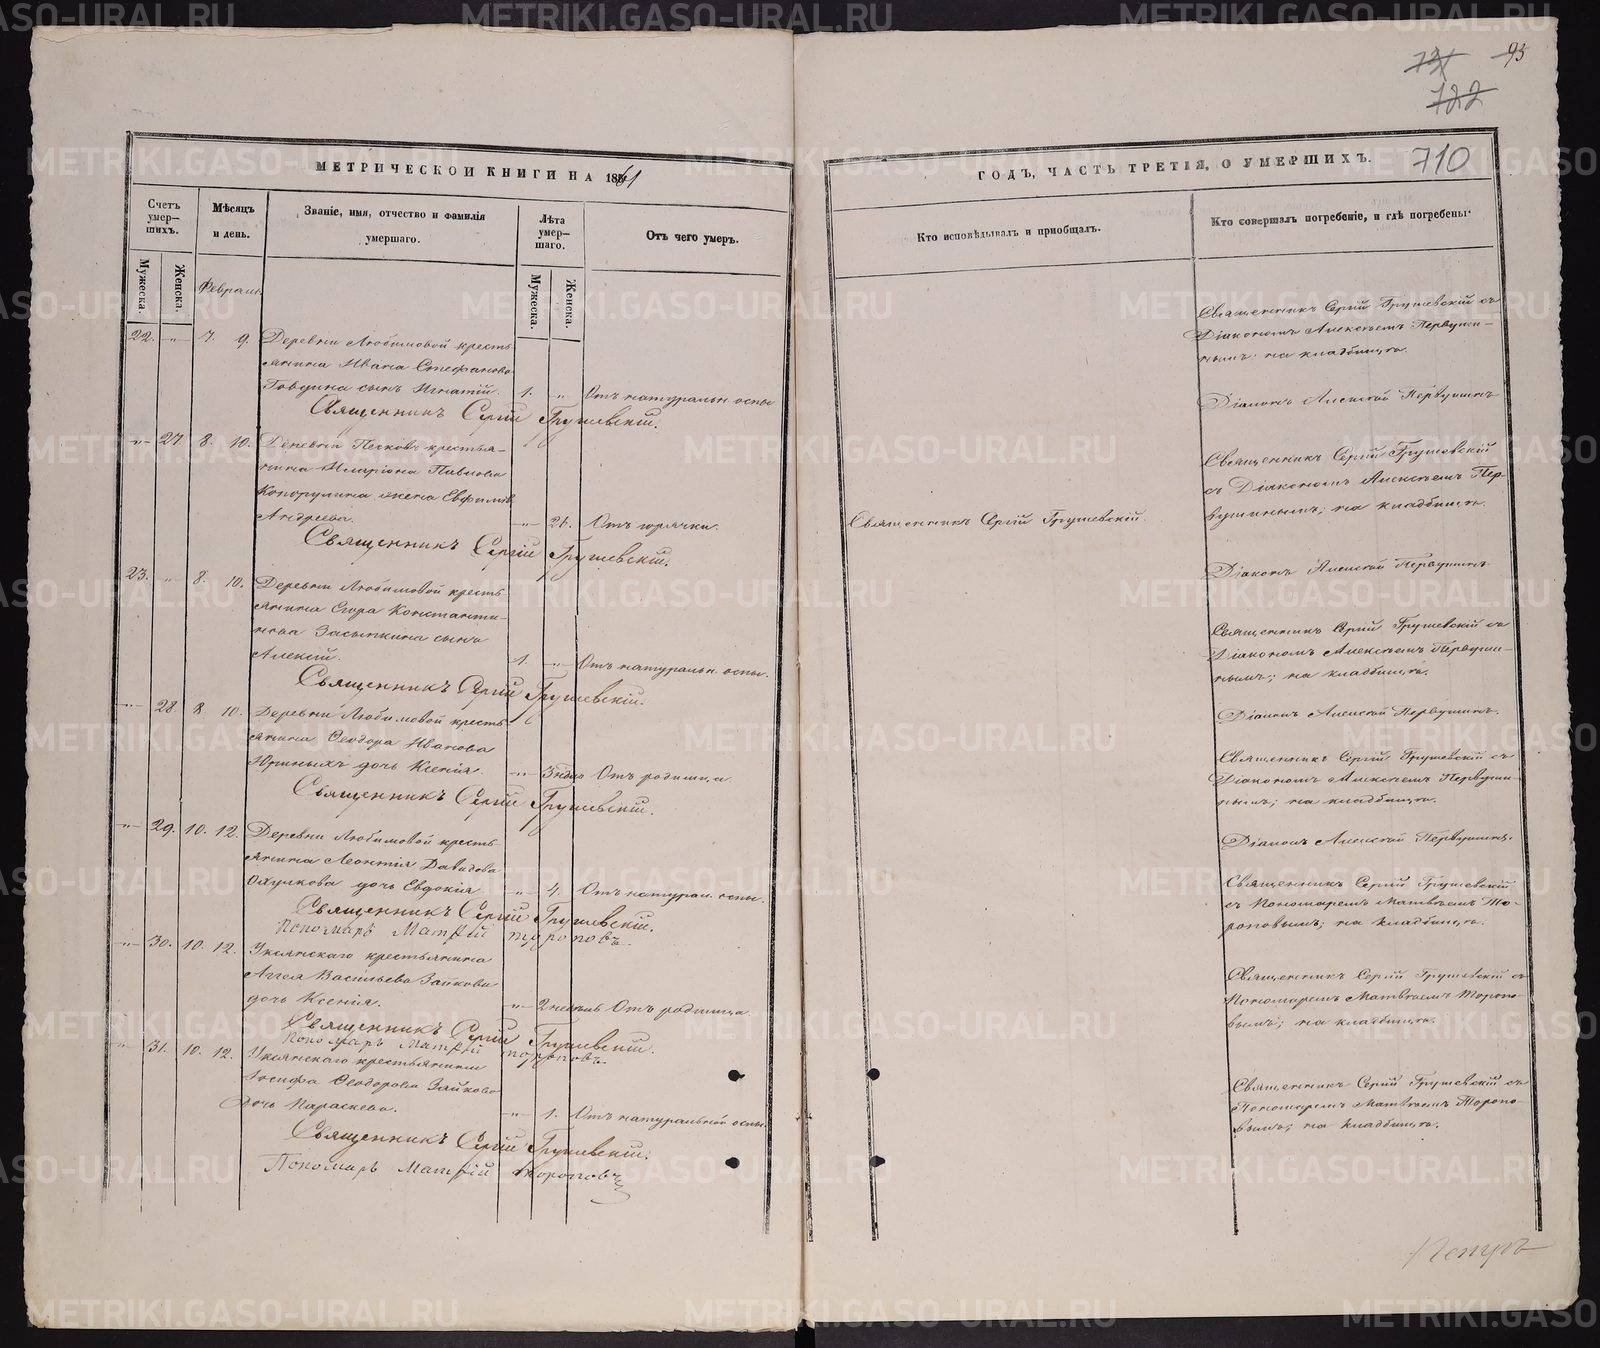 МЕТРИЧЕСКОЙ КНИГИ НА 1861
Счетъ умер-шихъ.
Мужеска.
Женска.
Мѣсяцъ и день.
Званіе, имя, отчество и фамилія умершаго.
Лѣта умер-шаго.
Мужеска.
Женска.
Отъ чего умеръ.
Февраль
22. „ 7. 9. Деревни Любимовой кресть-
янина Ивана Стефанова
сынъ Игнатій. 1. „ Отъ натуральн. оспы
Священникъ Сергій Грушевскій.
„ 27 8. 10. Деревни Песковъ крестья-
нина Иларіона Павлова
жена Евфимія
Андреева. „ 26. Отъ горячки.
Священникъ Сергій Грушевскій.
23. „ 8. 10. Деревни Любимовой кресть-
янина Егора Константи-
нова Засыпкина сынъ
Алексій. 1. „ Отъ натуральн. оспы.
Священникъ Сергій Грушевскій.
„ 28 8. 10. Деревни Любимовой кресть-
янина Ѳеодора Иванова
Юриныхъ дочь Ксенія. „ 3 нѣд. Отъ родимца.
Священникъ Сергій Грушевскій.
„ 29. 10. 12. Деревни Любимовой кресть-
янина Леонтія Давидова
дочь Евдокія „ 4. Отъ натурал. оспы.
Священникъ Сергій Грушевскій.
Пономарь Матѳій Тороповъ
„ 30. 10. 12. Уксянскаго крестьянина
Аггея Васильева Зайкова
дочь Ксенія. „ 2 Отъ родимца.
Священникъ Сергій Грушевскій.
Пономарь Матѳій Тороповъ
„ 31. 10. 12. Уксянскаго крестьянина
Іосифа Ѳеодорова Зайкова
дочь Параскева. „ 1. Отъ натуральной оспы.
Священникъ Сергій Грушевскій.
Пономарь Матѳій Тороповъ
93
722
710
ГОДЪ, ЧАСТЬ ТРЕТІЯ, О УМЕРШИХЪ.
Кто исповѣдывалъ и пріобщалъ.
Кто совершалъ погребеніе, и гдѣ погребены.
Священникъ Сергій Грушевскій съ
Діакономъ Алексѣемъ Первуши-
нымъ; на кладбищѣ.
Діаконъ Алексѣй Первушинъ
Священникъ Сергій Грушевскій
съ Діакономъ Алексѣемъ Пер-
вушинымъ; на кладбищѣ.
Священникъ Сергій Грушевскій.
Діаконъ Алексѣй Первушинъ
Священникъ Сергій Грушевскій съ
Діакономъ Алексѣемъ Первуши-
нымъ; на кладбищѣ.
Діаконъ Алексѣй Первушинъ.
Священникъ Сергій Грушевскій съ
Діакономъ Алексѣемъ Первуши-
нымъ; на кладбищѣ.
Діаконъ Алексѣй Первушинъ.
Священникъ Сергій Грушевскій
съ Пономаремъ Матвѣемъ То-
роповымъ; на кладбищѣ.
Священникъ Сергій Грушевскій съ
Пономаремъ Матвѣемъ Торопо-
вымъ; на кладбищѣ.
Священникъ Сергій Грушевскій съ
Пономаремъ Матвѣемъ Торопо-
вымъ; на кладбищѣ.
METRIKI.GASO-URAL.RU